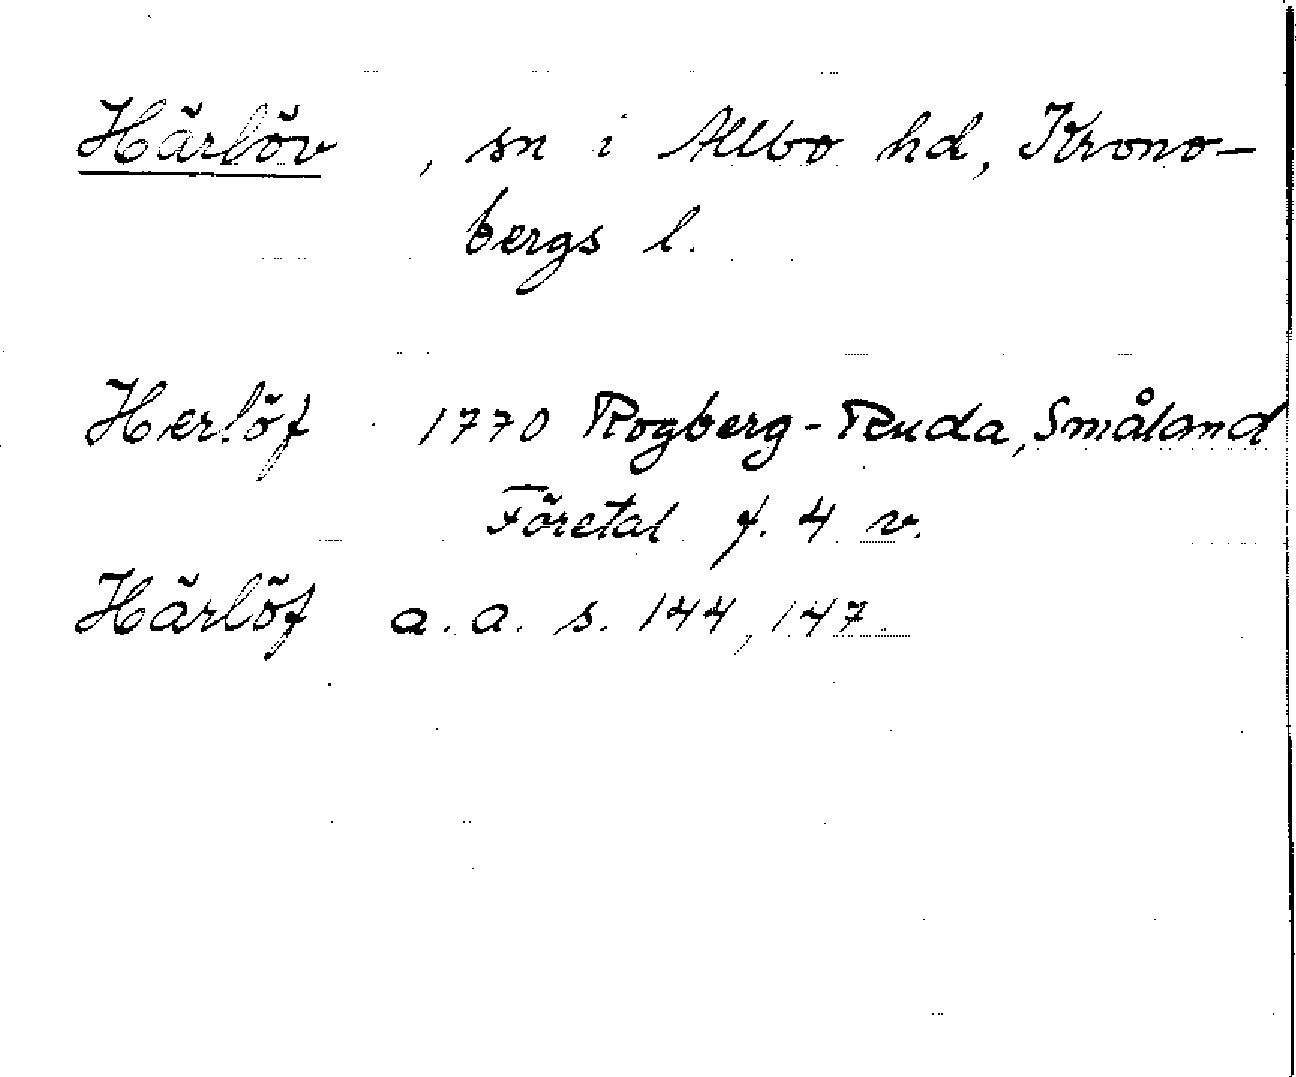 Härlöv, sn i Allbo hd, Krono-
bergs l.
Herlöf 1770 Rogberg-Ruda, Småland
Företal f. 4 v.
Härlöf a. a. s. 144, 147.